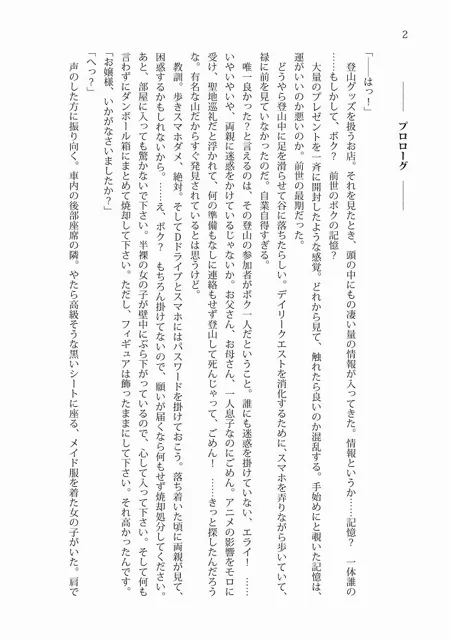 2
プロローグ
「――はっ！」
　登山グッズを扱うお店。それを見たとき、頭の中にもの凄い量の情報が入ってきた。情報というか……記憶？　一体誰の
……もしかして、ボク？　前世のボクの記憶？
　大量のプレゼントを一斉に開封したような感覚。どれから見て、触れたら良いのか混乱する。手始めにと覗いた記憶は、
運がいいのか悪いのか。前世の最期だった。
　どうやら登山中に足を滑らせて谷に落ちたらしい。デイリークエストを消化するために、スマホを弄りながら歩いていて、
禄に前を見ていなかったのだ。自業自得すぎる。
　唯一良かった？と言えるのは、その登山の参加者がボク一人だということ。誰にも迷惑を掛けていない、エライ！　……
いやいやいや、両親に迷惑をかけているじゃないか。お父さん、お母さん、一人息子なのにごめん。アニメの影響をモロに
受け、聖地巡礼だと浮かれて、何の準備もなしに連絡もせず登山して死んじゃって、ごめん！　……きっと探したんだろう
な。有名な山だからすぐ発見されているとは思うけど。
　教訓。歩きスマホダメ、絶対。そしてDドライブとスマホにはパスワードを掛けておこう。落ち着いた頃に両親が見て、
困惑するかもしれないから。……え、ボク？　もちろん掛けてないので、願いが届くなら何もせず焼却処分してください。
あと、部屋に入っても驚かないで下さい。半裸の女の子が壁中にぶら下がっているので、心して入って下さい。そして何も
言わずにダンボール箱にまとめて焼却して下さい。ただし、フィギュアは飾ったままにして下さい。それ高かったんです。
「お嬢様、いかがなさいましたか？」
「へっ？」
　声のした方に振り向く。車内の後部座席の隣。やたら高級そうな黒いシートに座る、メイド服を着た女の子がいた。肩で